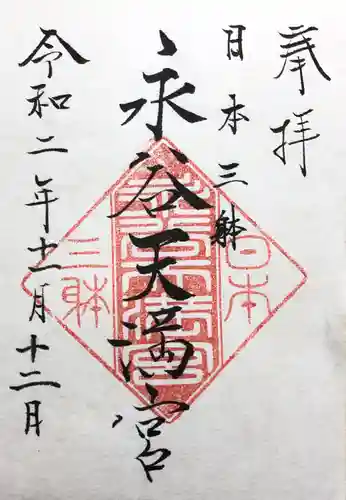 奉拝
日本三躰
永谷天満宮
令和二年十一月十二日
日本
三躰